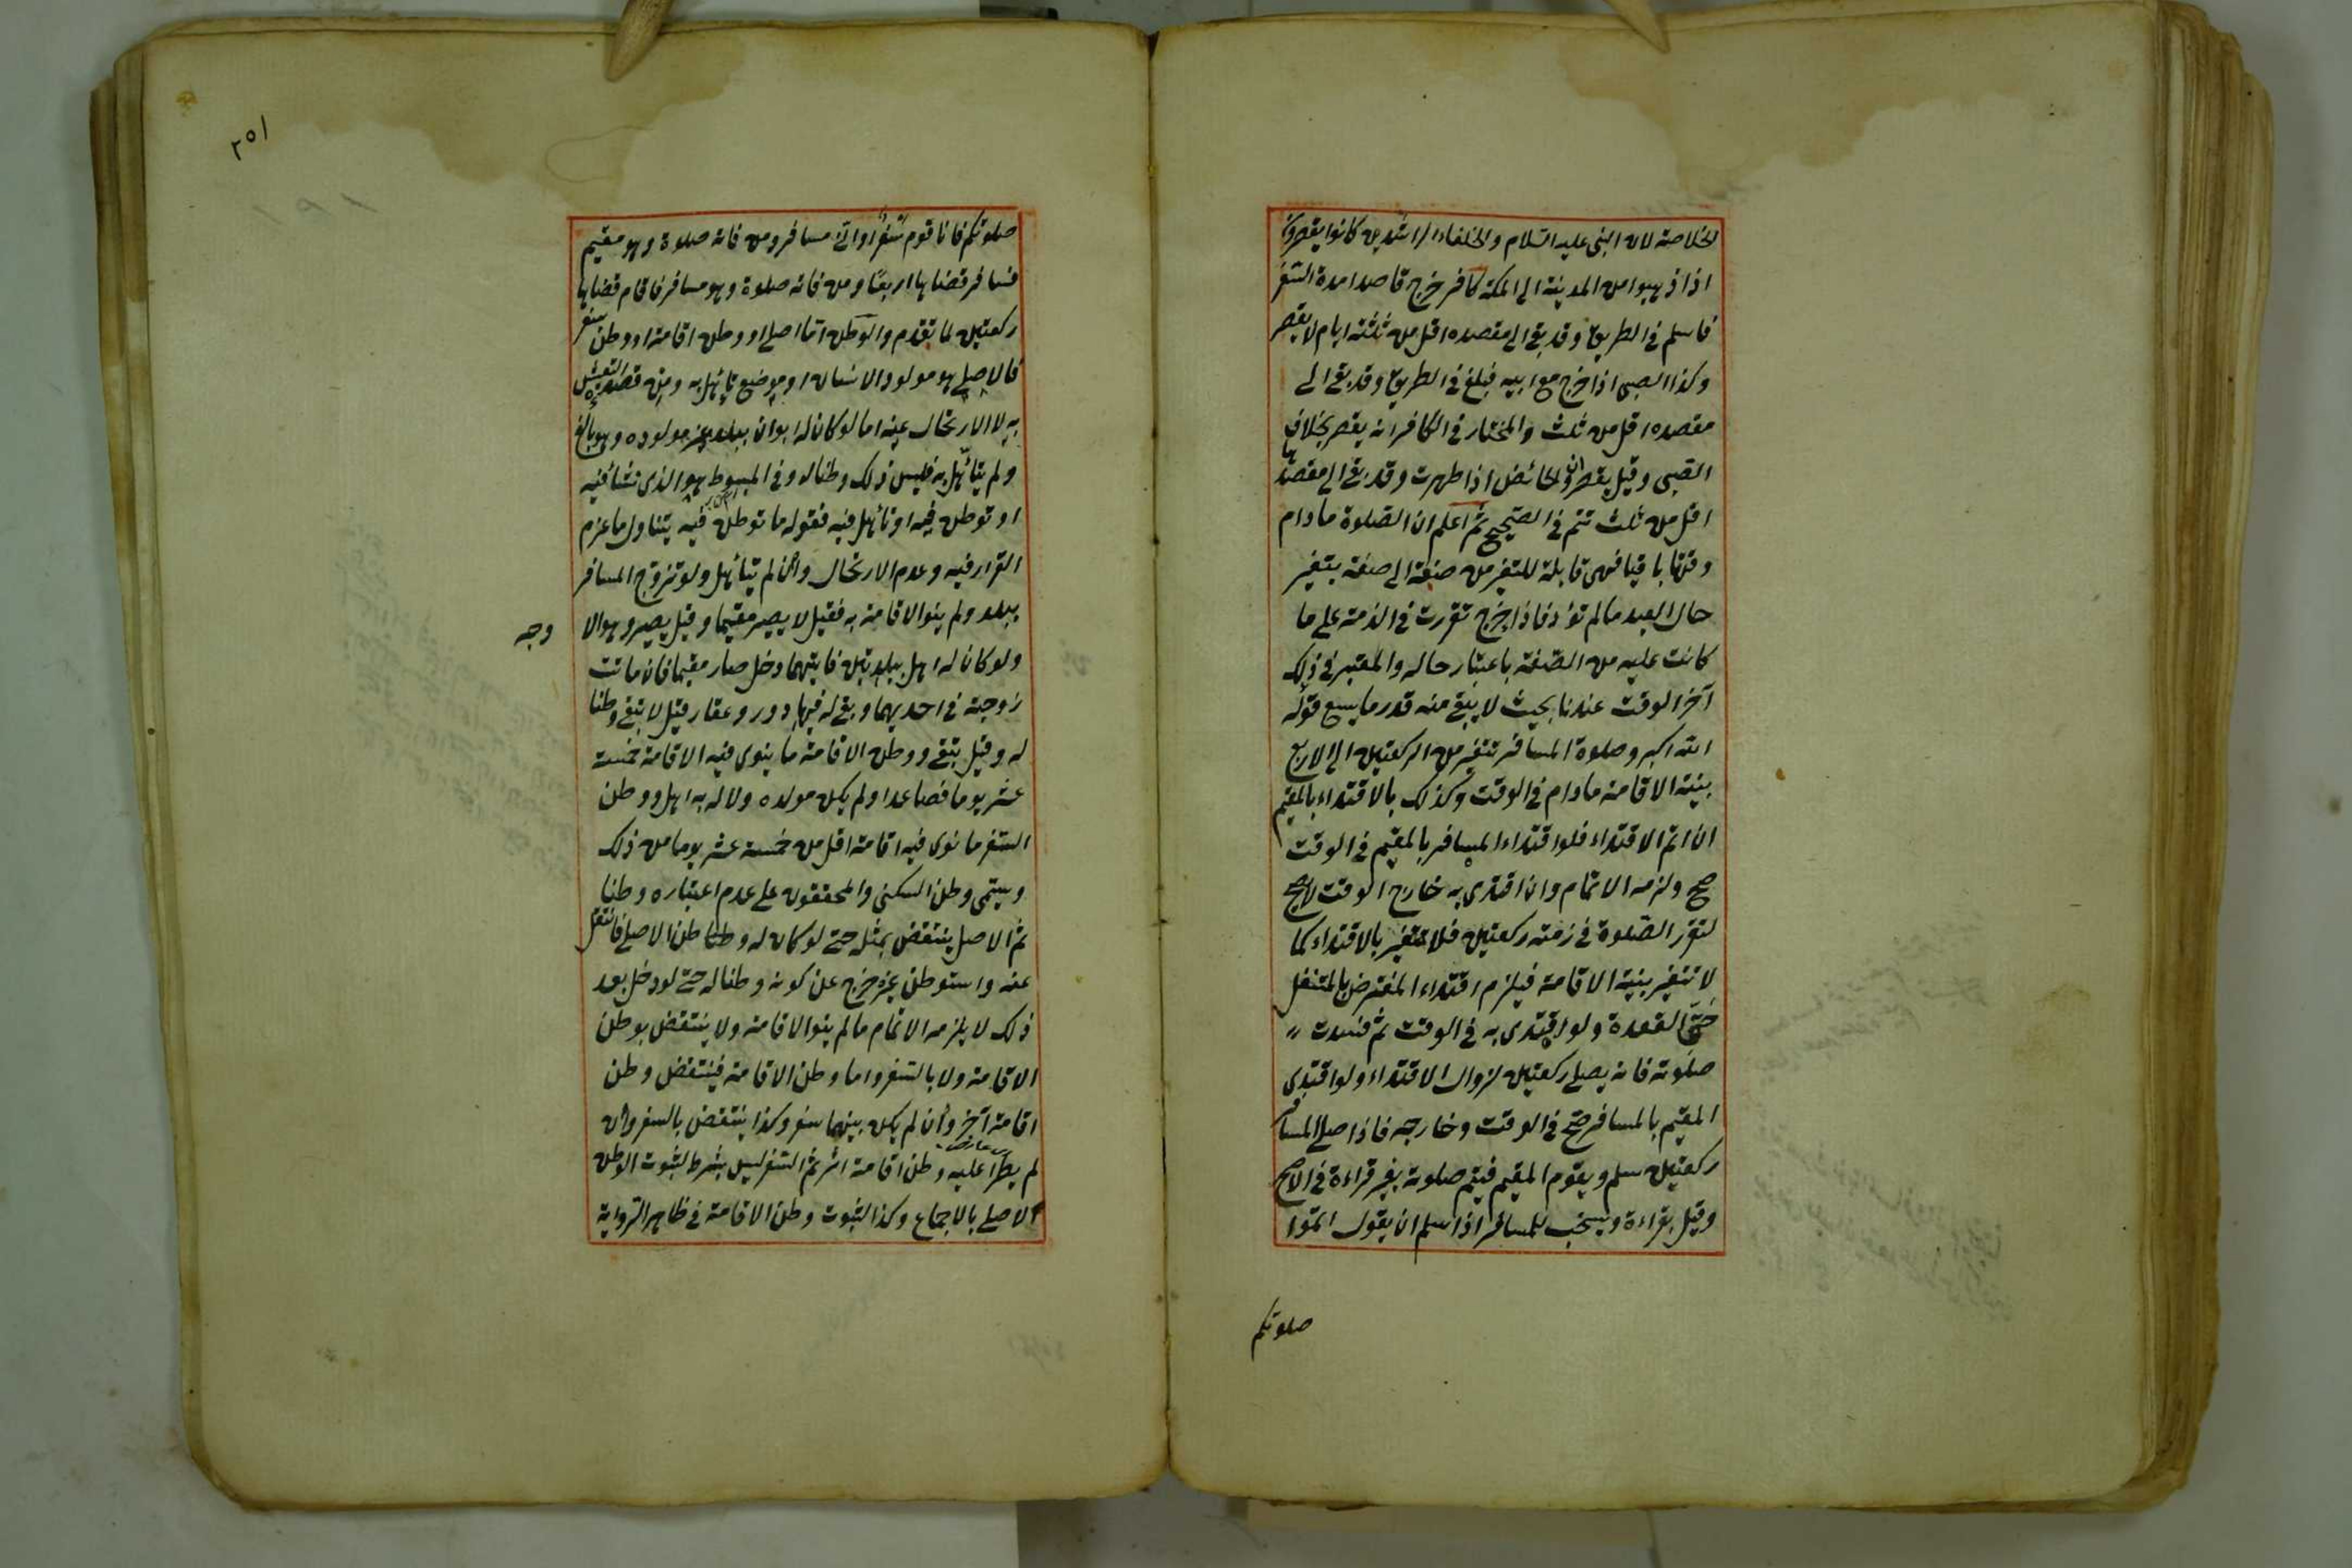 الخلاصة لان النبي عليه السلام والخلفاء الراشدين كانوا يقصرون
اذا ذهبوا من المدينة الى المكة كافر خرج قاصدا مدة السفر
فاسلم في الطريق وقد بقى الى مقصده اقل من ثلثة ايام لا يقصر
وكذا الصبى اذا خرج مع ابيه فبلغ في الطريق وقد بقى الى
مقصده اقل من ثلث والمختار في الكافر انه يقصر بخلاف
الصبى وقيل يقصران والحائض اذا طهرت وقد بقى الى مقصدها
اقل من ثلث تتم في الصحيح ثم اعلم ان الصلوة مادام
وقتها باقيا فهى قابلة للتغير من صفة الى صفة بتغير
حال العبد مالم تؤد فاذا خرج تقررت في الذمة على ما
كانت عليه من الصفة باعتبار حاله والمعتبر في ذلك
آخر الوقت عندنا بحيث لا يبقى منه قدر ما يسع قوله
الله اكبر وصلوة المسافر تتغير من الركعتين الى الاربع
بنية الاقامة مادام في الوقت وكذلك بالاقتداء بالمقيم
ان اتم الاقتداء فلو اقتداء المسافر بالمقيم في الوقت
صح ولزمه الاتمام وان اقتدى به خارج الوقت لا يصح
لتقرر الصلوة في ذمته ركعتين فلا تتغير بالاقتداء كما
لا تتغير بنية الاقامة فيلزم اقتداء المفترض بالمتنفل
حق القعدة ولو اقتدى به في الوقت ثم فسدت
صلوته فانه يصلى ركعتين لزوال الاقتداء ولو اقتدى
المقيم بالمسافر صح في الوقت وخارجه فاذا صلى المسافر
ركعتين سلم ويقوم المقيم فيتم صلوته بغير قراءة في الاصح
وقيل بقراءة ويستحب للمسافر اذا سلم ان يقول اتموا
صلوتكم
٢٥١
صلوتكم فانا قوم سفر او انى مسافر ومن فاته صلوة وهو مقيم
فسافر قضاها اربعا ومن فاته صلوة وهو مسافر فاقام قضاها
ركعتين لما تقدم والوطن اما اصلى او وطن اقامة او وطن سفر
فالاصلى هو مولود الانسان او موضع تأهل به ومن قصده التعيش
به لا الارتحال عنه اما لو كان له ابوان ببلد غير مولوده وهو بالغ
ولم يتأهل به فليس ذلك وطنا له وفي المبسوط هو الذى نشأ فيه
او توطن فيه او تأهل فيه فقوله ما توطن فيه يتناول ما عزم
القرار فيه وعدم الارتحال وان لم يتأهل ولو تزوج المسافر
ببلد ولم ينو الاقامة به فقيل لا يصير مقيما وقيل يصير وهو الا
وجه
ولو كان له اهل ببلدتين فايتهما دخل صار مقيما فان ماتت
زوجته في احديهما وبقى له فيها دور وعقار قيل لا تبقى وطنا
له وقيل تبقى ووطن الاقامة ما ينوى فيه الاقامة خمسة
عشر يوما فصاعدا ولم يكن مولده ولا له به اهل ووطن
السفر ما نوى فيه اقامة اقل من خمسة عشر يوما من ذلك
ويسمى وطن السكنى والمحققون على عدم اعتباره وطنا
ثم الاصلى ينتقض بمثله حتى لو كان له وطنا الاصلى فانتقل
عنه واستوطن غيره خرج عن كونه وطنا له حتى لو دخل بعد
ذلك لا يلزمه الاتمام مالم ينو الاقامة ولا ينتقض بوطن
الاقامة ولا بالسفر واما وطن الاقامة فينتقض وطن
اقامة آخر وان لم يكن بينهما سفر وكذا ينتقض بالسفر وان
لم يطرأ عليه وطن اقامة اثر ثم السفر ليس بشرط لثبوت الوطن
الاصلى بالاجماع وكذا لثبوت وطن الاقامة في ظاهر الرواية